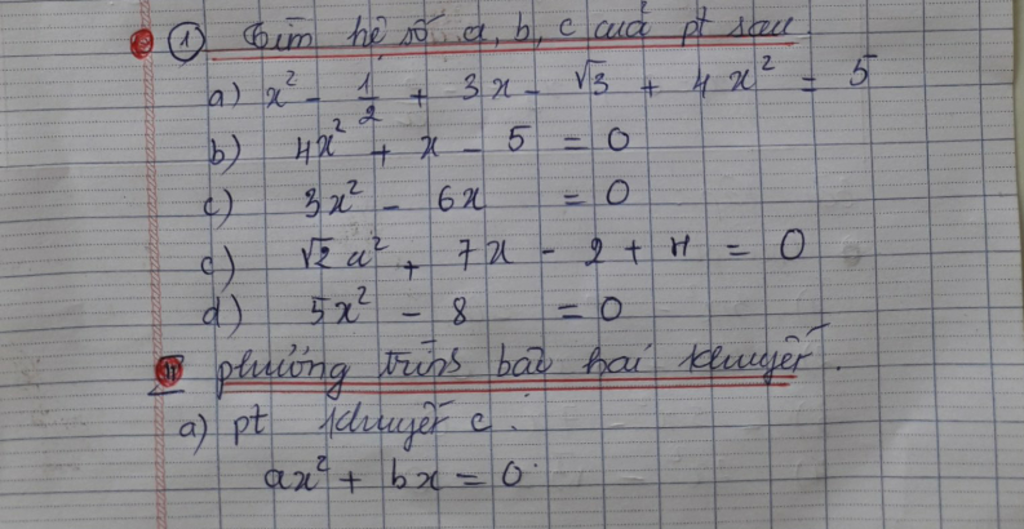 ① Tìm hệ số a, b, c của pt sau
a) x² - 1/2 + 3x - √3 + 4x² = 5
b) 4x² + x - 5 = 0
c) 3x² - 6x = 0
d) √2 x² + 7x - 2 + π = 0
d) 5x² - 8 = 0
II phương trình bậc hai khuyết.
a) pt khuyết c.
ax² + bx = 0